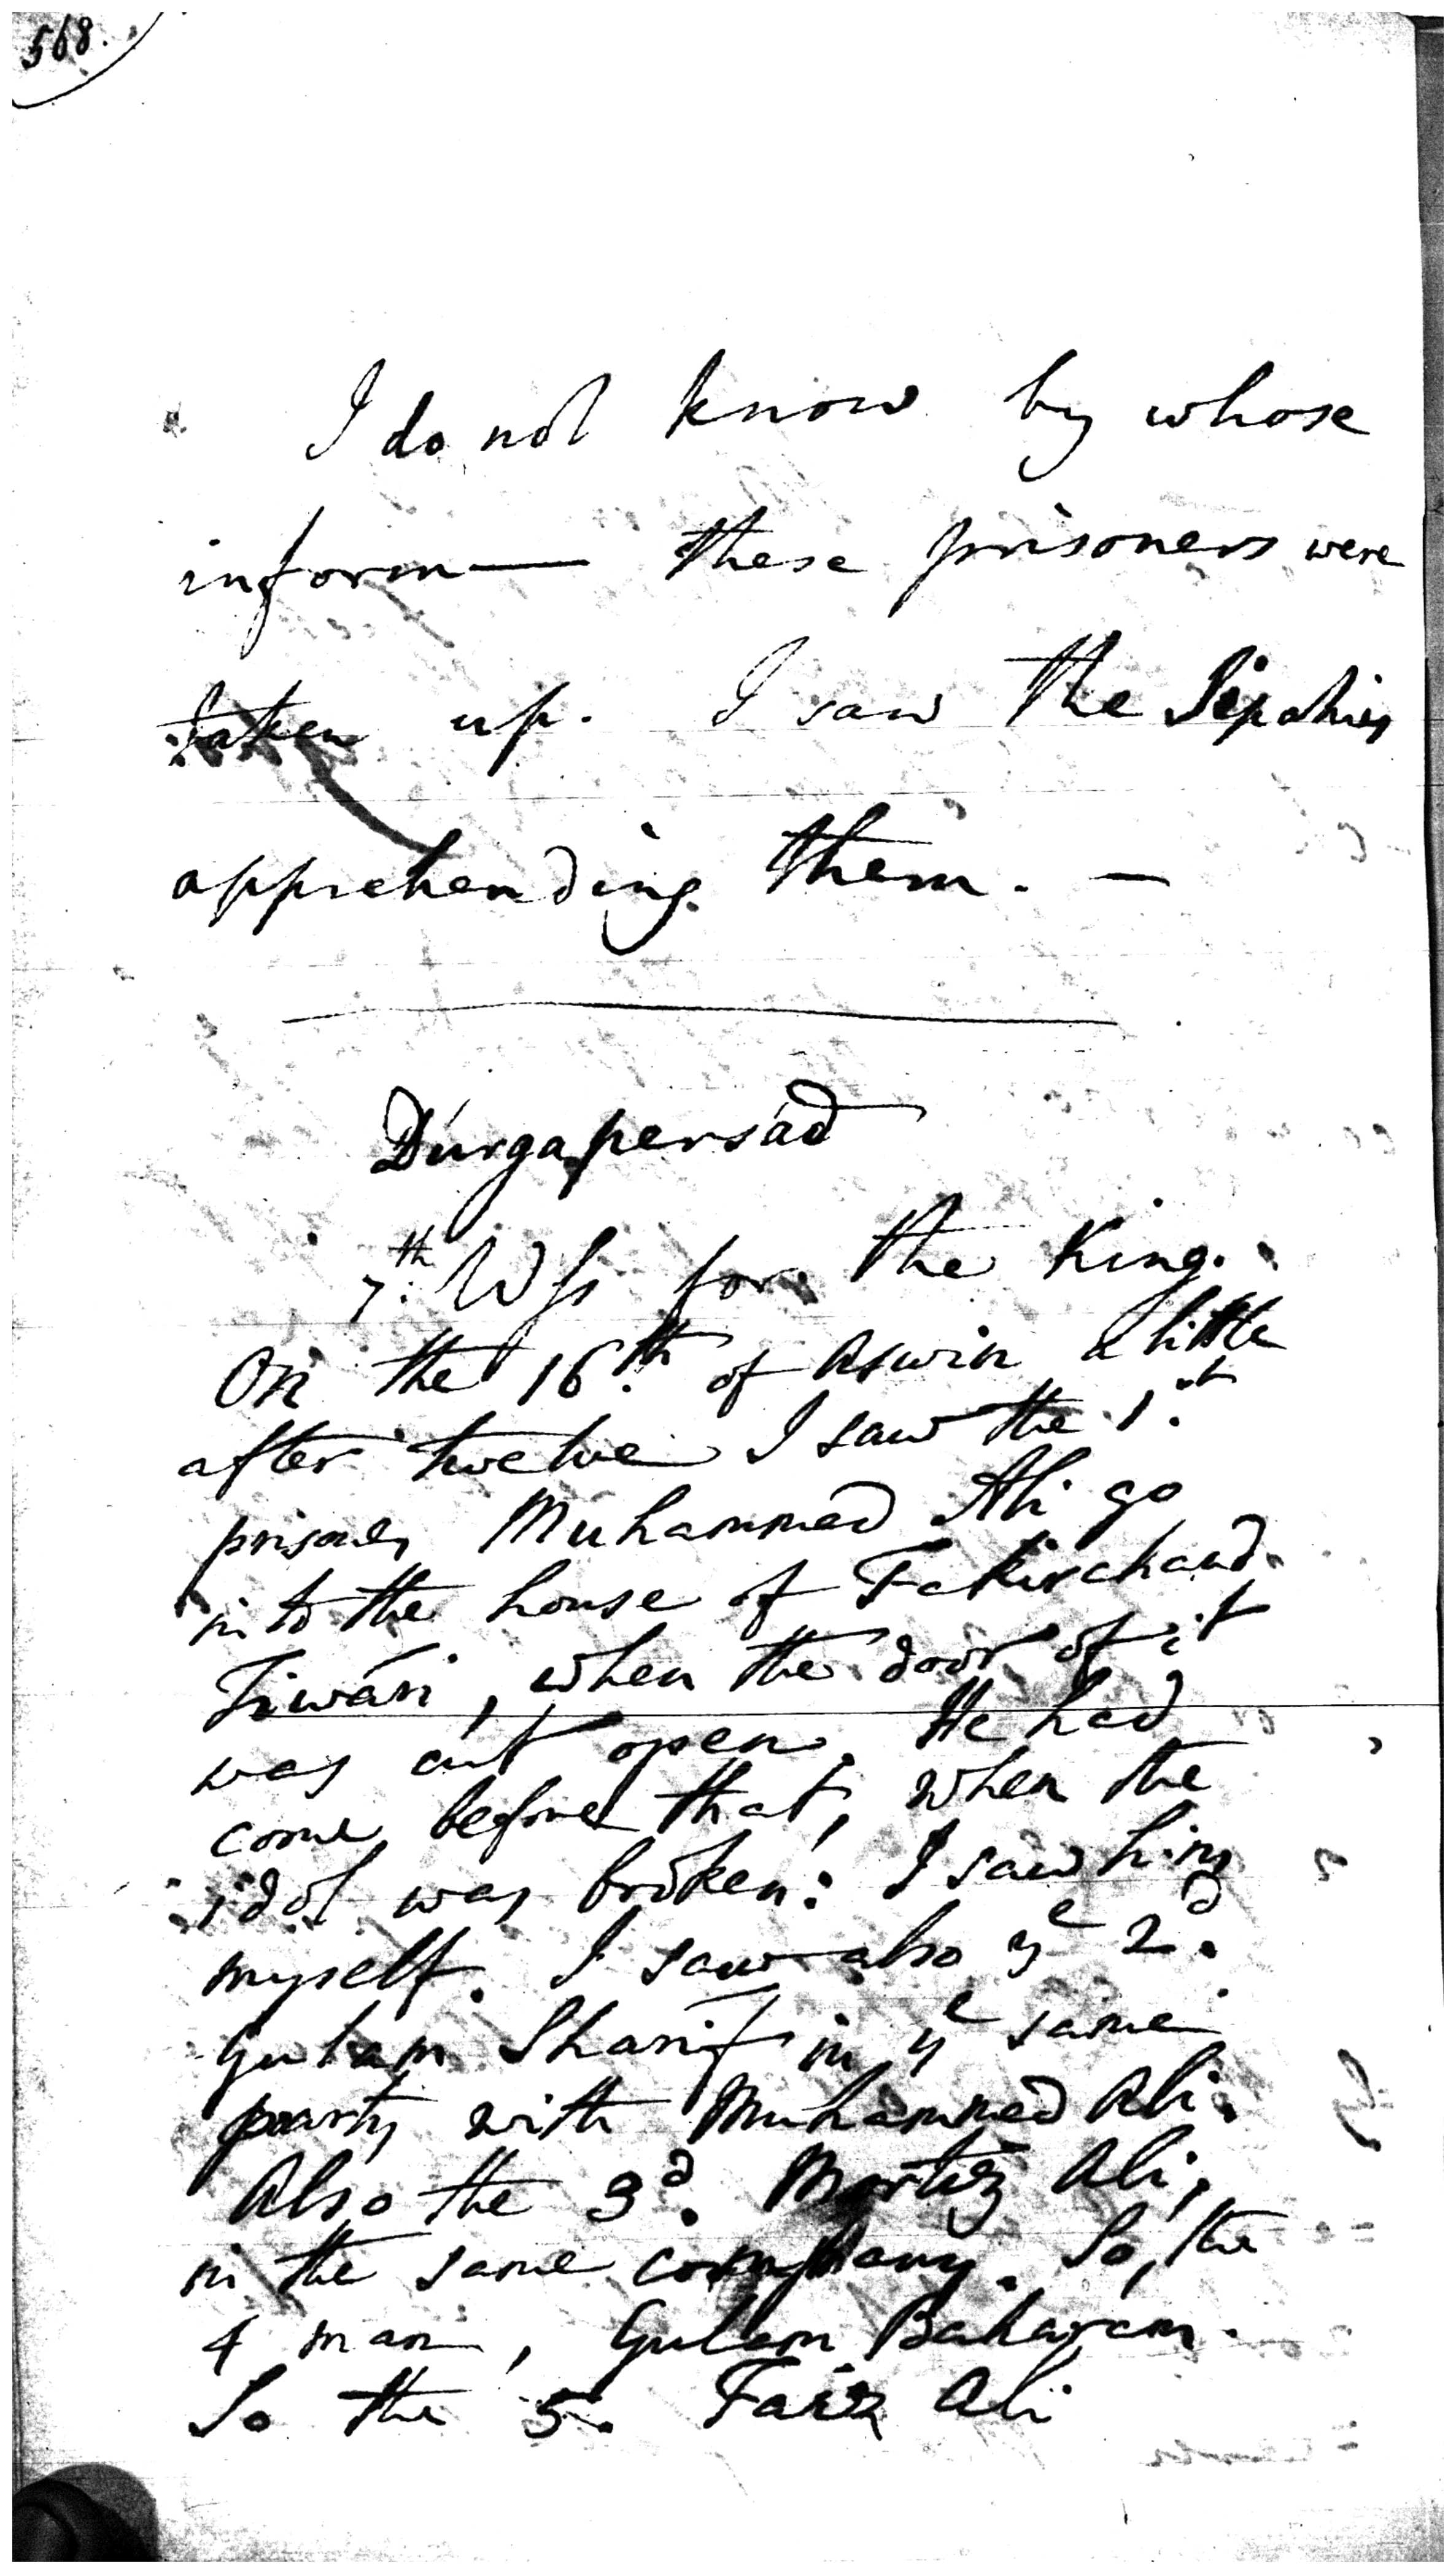 568.
I do not know by whose
inform— these prisoners were
taken up. I saw the Sipahies
apprehending them. —
Durgapersád
7th. Wss for the King.
On the 16th. of Aswin a little
after twelve I saw the 1.st
prisoner, Muhammed Ali go
into the house of Fakirchand
Tiwári, when the door of it
was cut open. He had
come before that, when the
idol was broken: I saw him
myself. I saw also ye 2d.
Gulam Sharif in ye same
party with Muhammed Ali.
Also the 3d. Mortez Ali,
in the same company. So, the
4 man, Gulam Baharam.
So the 5. Faiz Ali